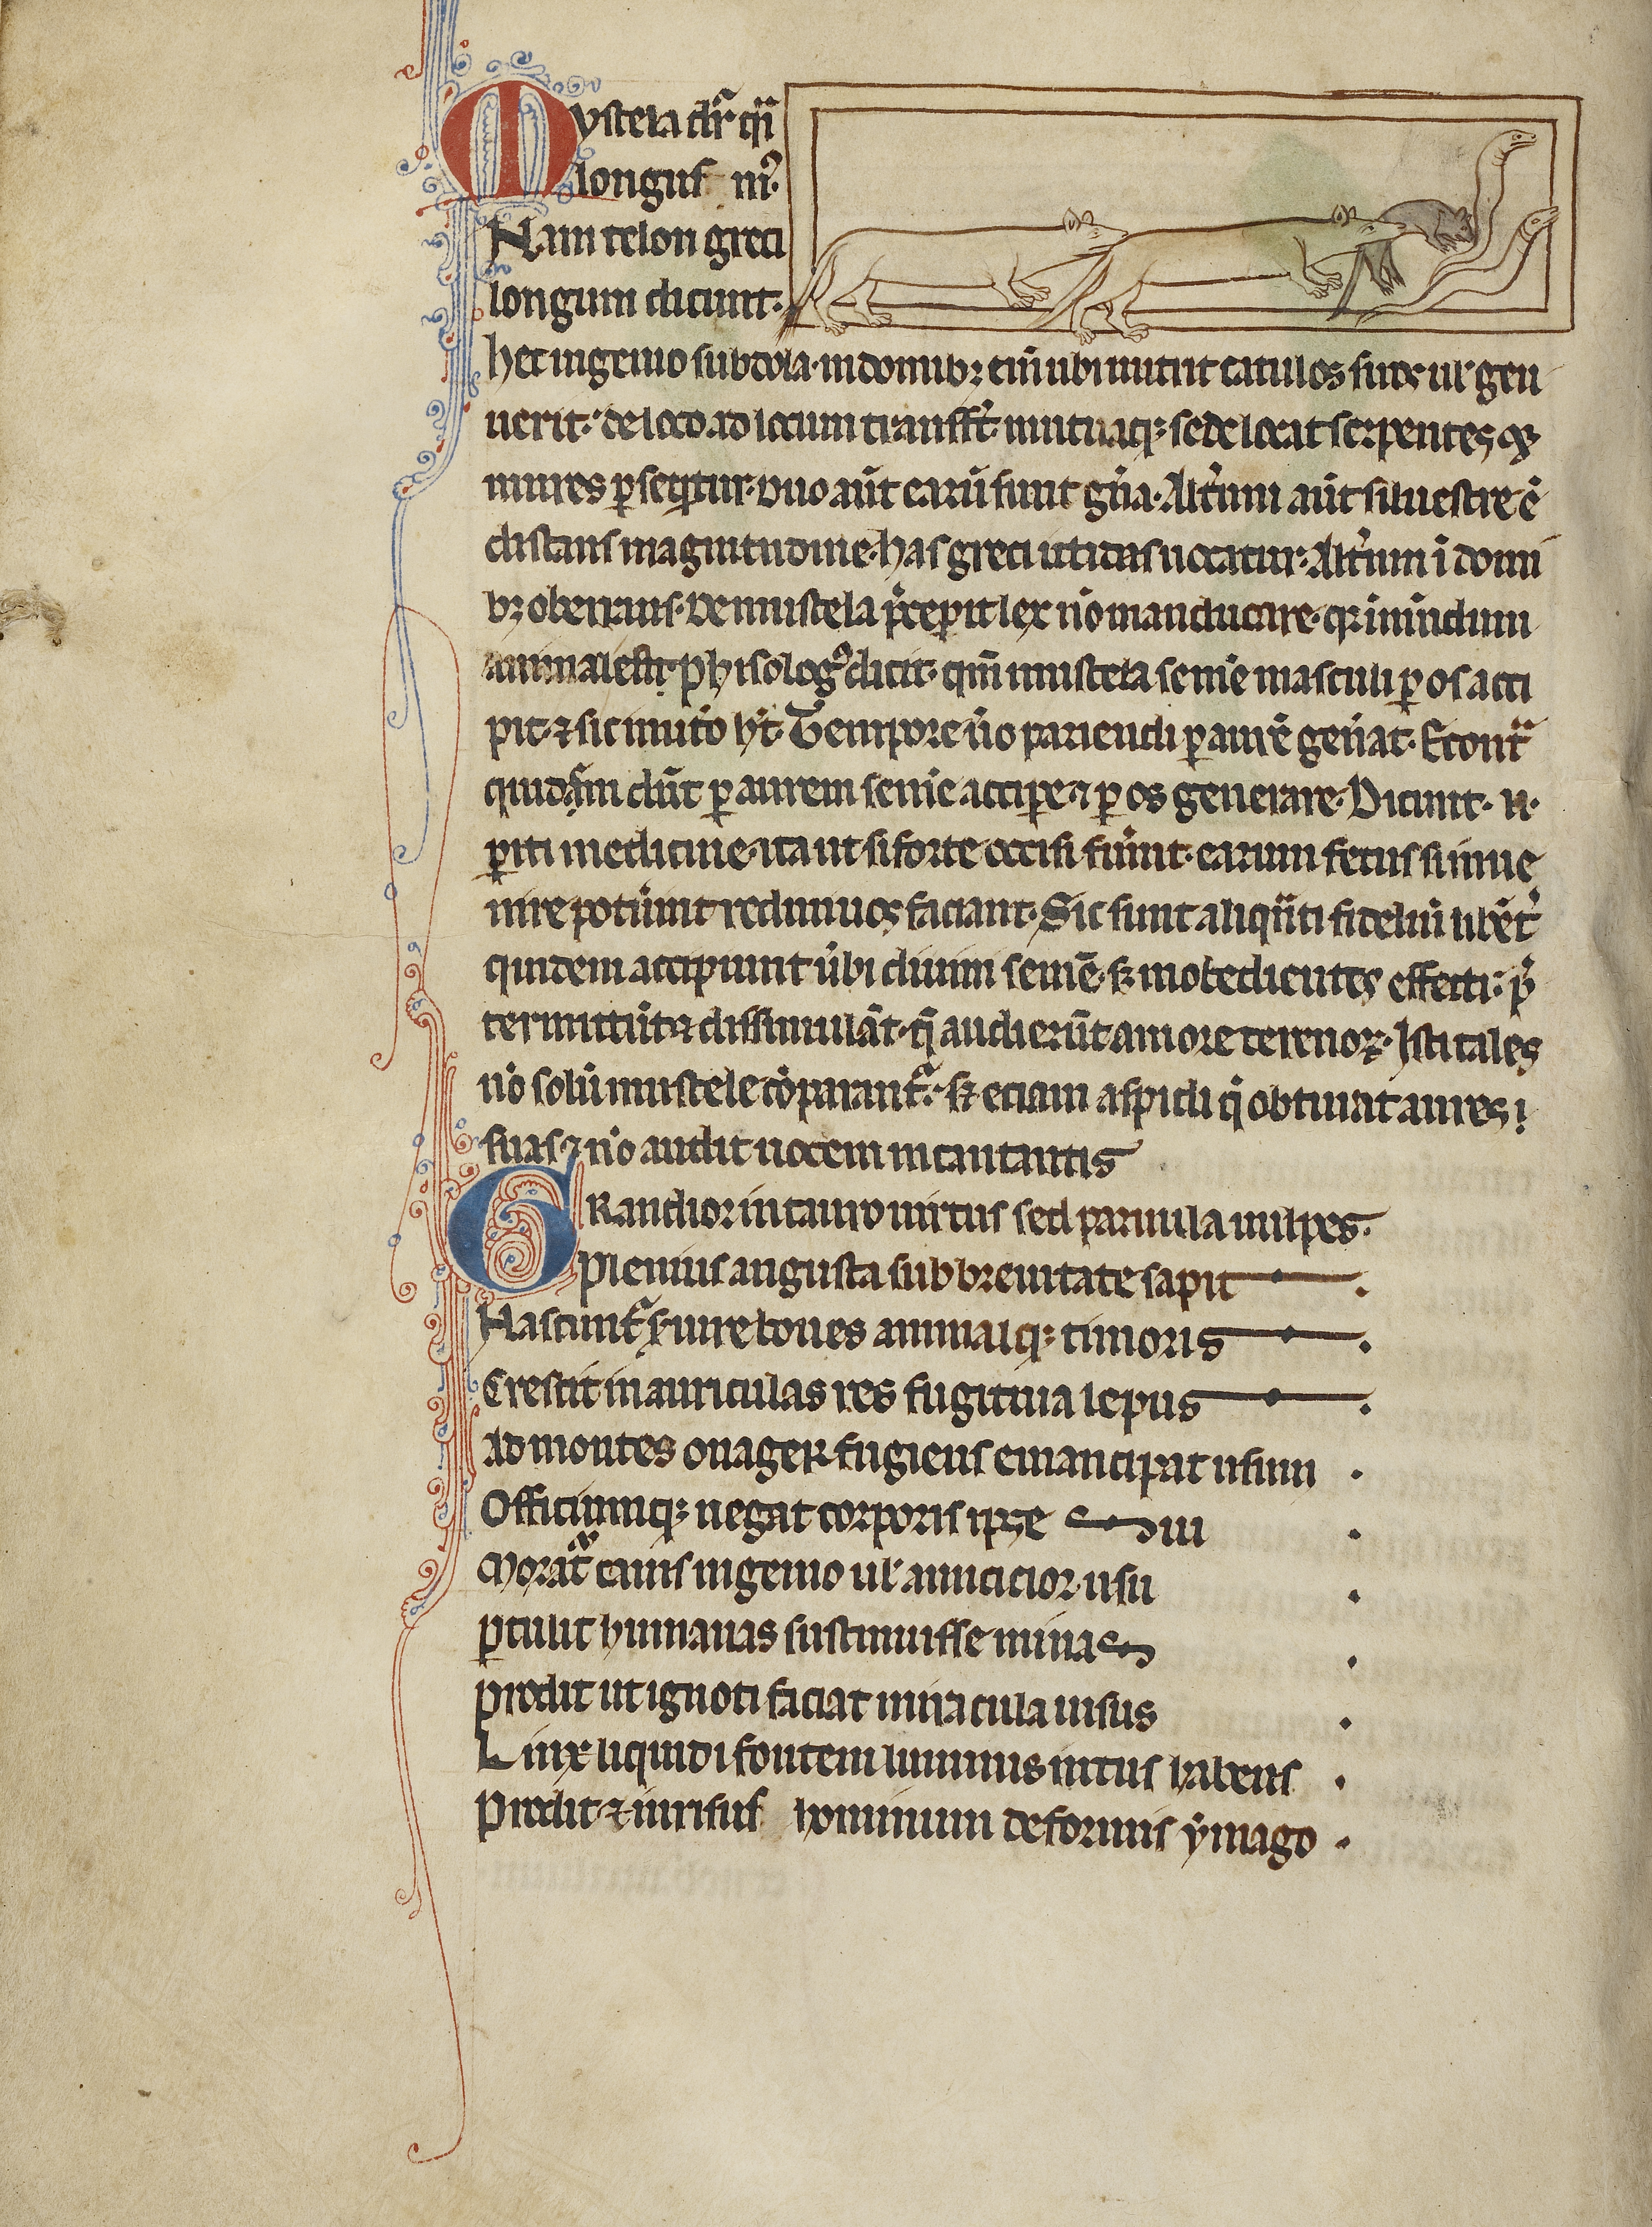 Mystela dr̄ q̄i
longus m̄9.
Nam telon greci
longum dicunt.
hec ingenio subdola. in domib; enī ubi nutrit catulos suos ul' gen
uerit. de loco ad locum transfert. mutataq; sede locat serpentes et
mures p̄seq̄tur. Duo aūt earū sunt gn̄a. Altm̄ aūt siluestre ē
distans magnitudine. has greci ictidas uocatur. Altm̄ ī domi
b; oberrans. De mustela p̄cepit lex nō manducare. q; īmūdum
animal est. Phisolog9 dicit. qm̄ mustela semē masculi p̄ os acci
pit. ⁊ sic in utō ht̄. Tempore ūo pariendi p̄ aurē gen̄at. Econtͣ
quidam dn̄t p̄ aurem semē accipe. ⁊ p̄ os generare. Dicunt. n̄.
p̄iti medicine. ita ut si forte occisi fūint. earum fetus si inue
nire potūint rediuiuos faciant. Sic sunt aliqn̄ti fideliū libēt̄
quidem accipiunt ūbi diuini semē. s; inobedientes effecti. p̄
termittūt ⁊ dissimulāt. q̄ audierūt amore terenoꝝ. Isti tales
nō solū mustele cōparantͣ. s; etiam aspidi q̄ obturat aures
suas ⁊ nō audit uocem incantantis
GRandior in tauro uirtus sed paruula uulpes.
plenius angusta sub breuitate sapit
Nascuntͣ s; iure boues animalq; timoris
Crescit in auriculas res fugitiua lepus
Ad montes onager fugiens emancipat usum
Officiumq; negat corporis ipse sui
Moratͣ canis ingenio ul' amicicior usu
p̄tulit humanas sustinuisse minas
Prodit ut ignoti faciat miracula uisus
Linx liquidi fontem luminis intus habens
Prodit ⁊ in risus hominum deformis ymago